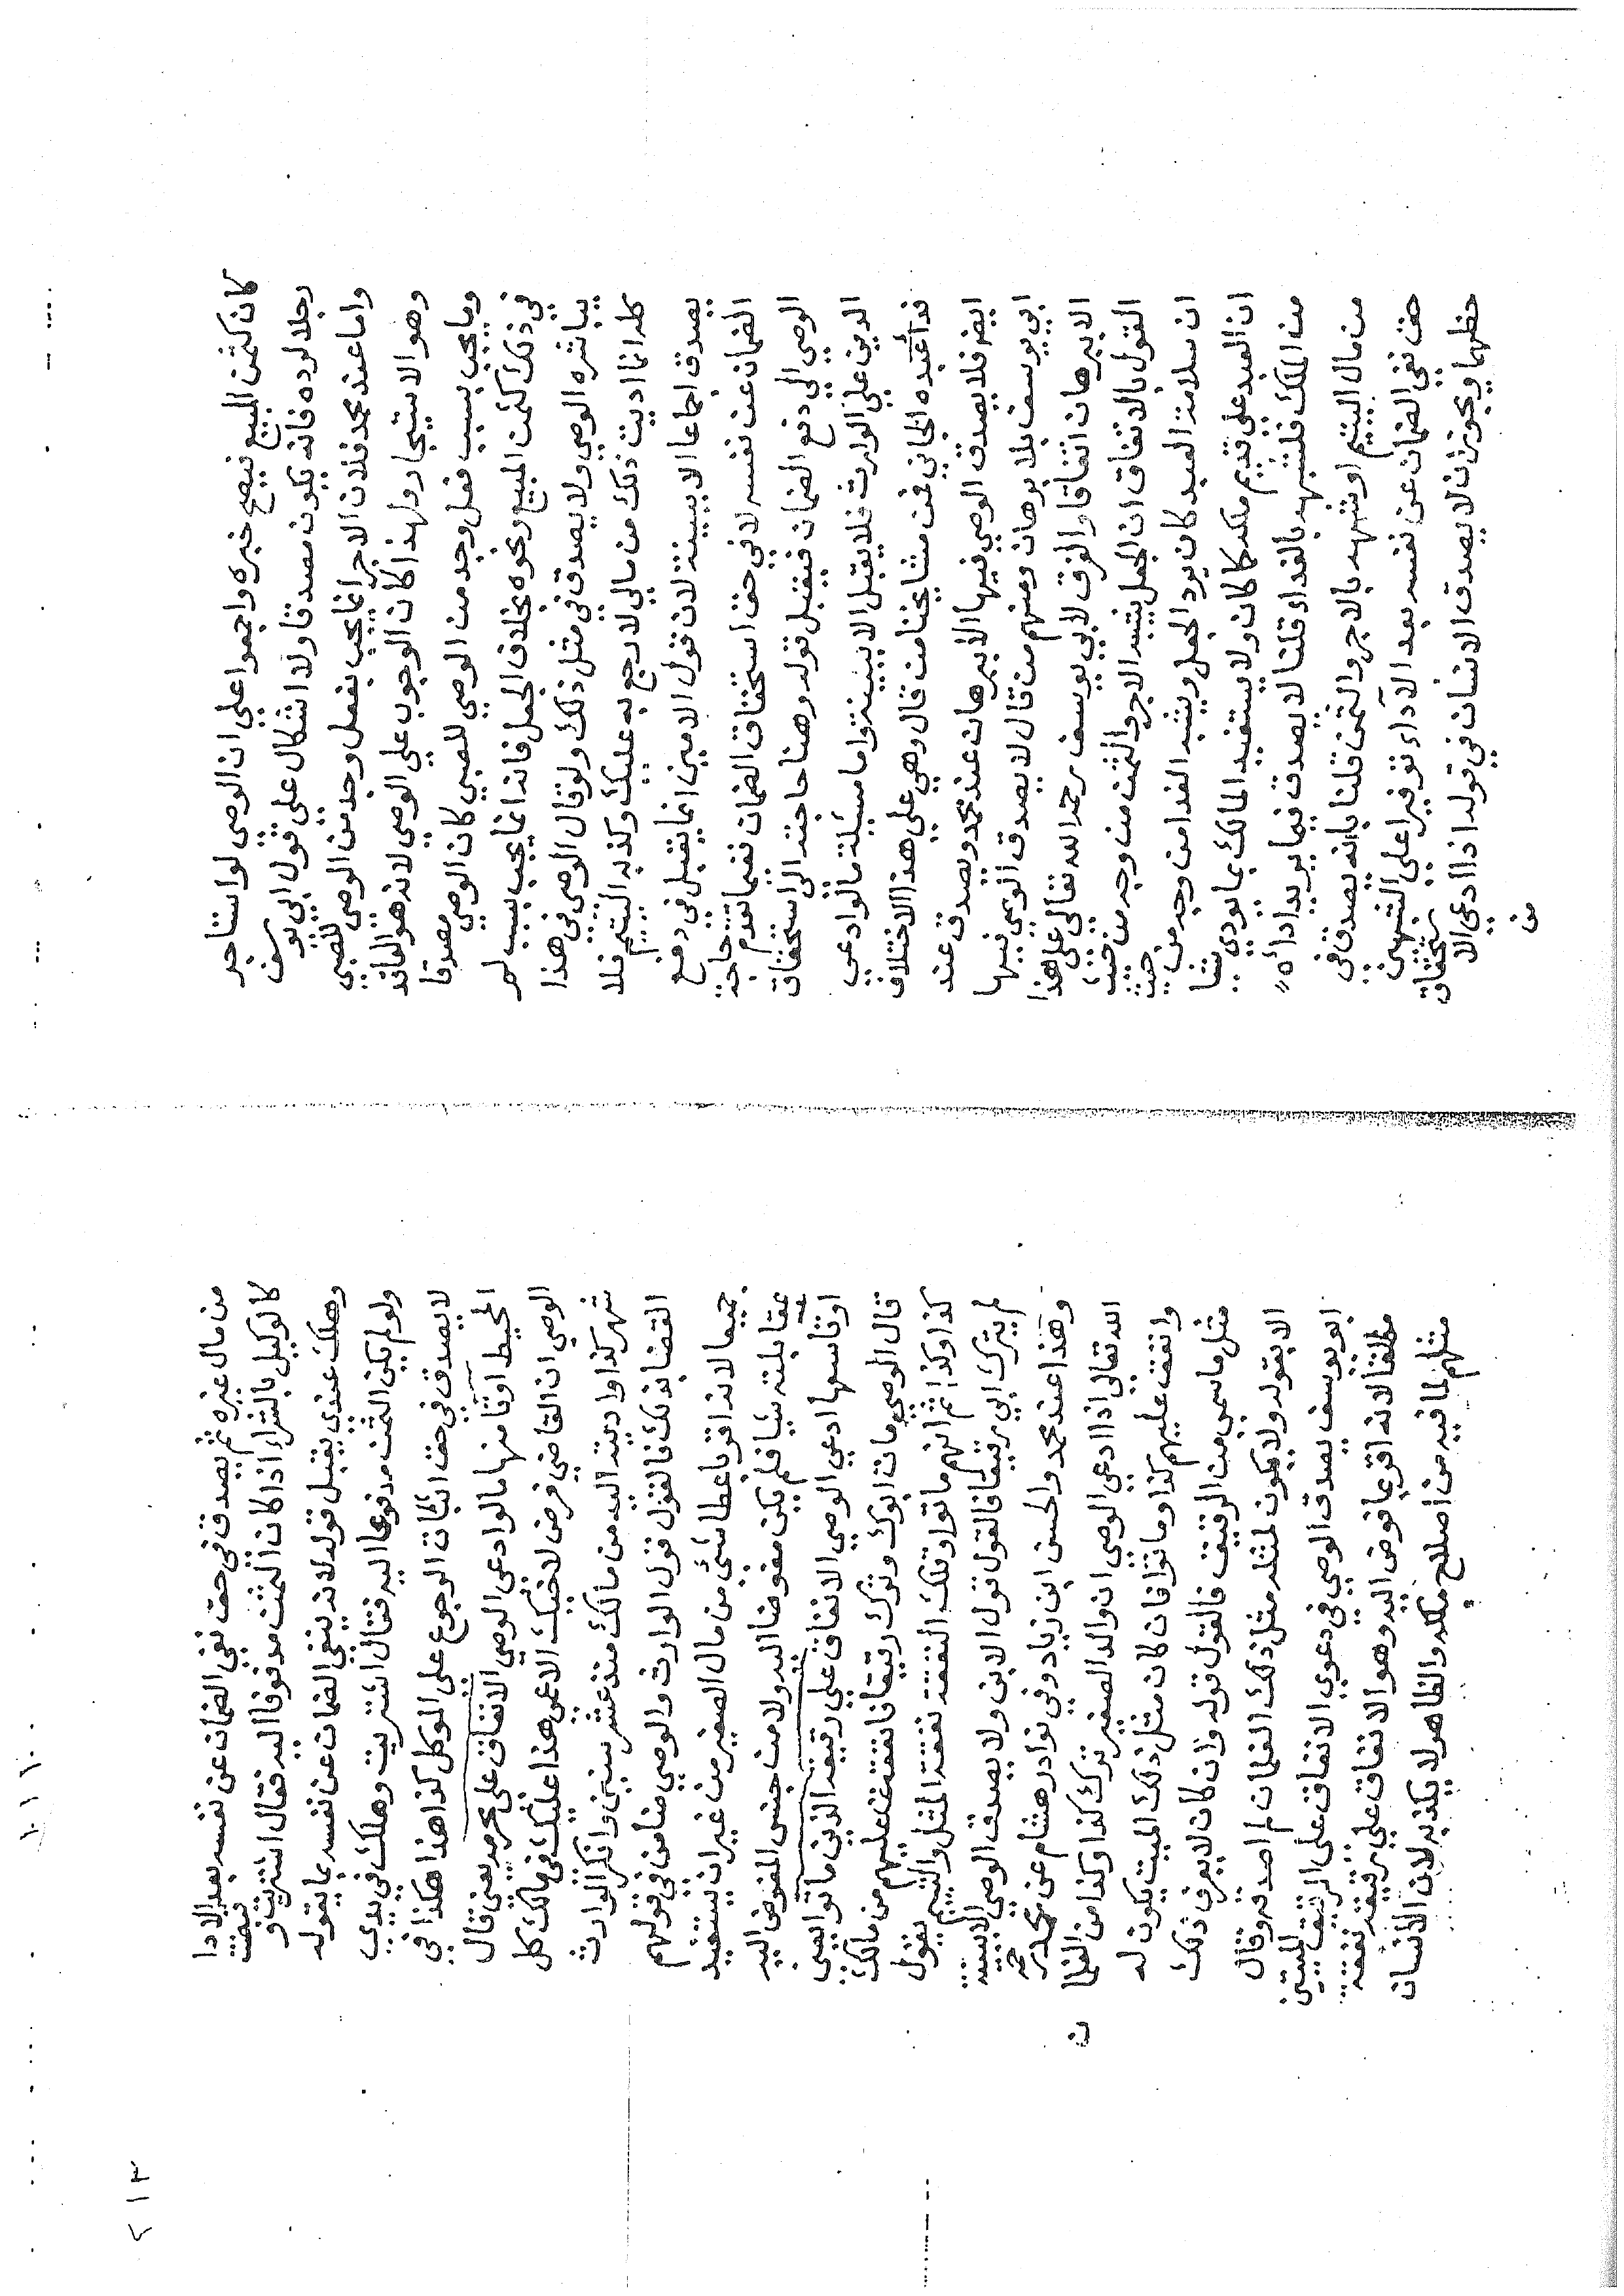 كان كثمن المبيع فيصح خبره واجمعوا علي ان الوصي لو استاجر
رجلا لرده فانه يكون مصدقا ولا اشكال علي قول ابي يوسف
واما عند محمد فلان الاجر انما يجب بفعل وجد من الوصي للصبي
وهو الاستيجار ولهذا كان الوجوب علي الوصي لانه هو العاقد
وما يجب بسبب فعل وجد من الوصي للصبي كان الوصي مصدقا
في ذلك كثمن المبيع ونحوه بخلاف الجعل فانه انما يجب بسبب لم
يباشره الوصي ولا يصدق في مثل ذلك ولو قال الوصي في هذا
كله انما اديت ذلك من مالي لارجع به عليك وكذبه اليتيم فلا
يصدق اجماعا الا ببينة لان قول الامين انما يقبل في دفع
الضمان عن نفسه لا في حق استحقاق الضمان نفيما تقدم حاجة
الوصي الي دفع الضمان فيقبل قوله وهنا حاجته الي استحقاق
الدين علي الوارث فلا يقبل الا ببينة واما مسيلة ما لو ادعي
فدا عبده الجاني فمن مشايخنا من قال وهي علي هذا الاختلاف
ايضا فلا يصدق الوصي فيها الا ببرهان عند محمد ويصدق عند
ابي يوسف بلا برهان ومنهم من قال لا يصدق الوصي فيها
الا ببرهان اتفاقا والفرق لابي يوسف رحمه الله تعالي علي هذا
القول بالاتفاق ان الجعل يشبه الاجر والثمن من وجه من حيث
ان سلامة العبد كان برد الجعل ويشبه الفدا من وجه من حيث
ان العبد علي قديم ملكه كما كان ولا يستفيد المالك بما يودي شيا
من الملك فلشبهه بالفداء قلنا لا يصدق فيما يريد اداه
من مال اليتيم او شهه بالاجر والثمن قلنا بانه يصدق في
حق نفي الضمان عن نفسه بعد الاداء توفيرا علي الشبهين
حظهما ويجوز ان لا يصدق الانسان في قوله اذا ادعي الاستحقاق
من
من مال غيره ثم يصدق في حق نفي الضمان عن نفسه بعد الادا
كالوكيل بالشراء اذا كان الثمن مدفوعا اليه فقال اشتريت وقبضت
وهلك عندي يقبل قوله لانه ينفي الضمان عن نفسه بما يقوله
ولو لم يكن الثمن مدفوعا اليه فقال اشتريت وهلك في يدي
لا يصدق في حق اثبات الرجوع علي الموكل كذا هذا هكذا في
المحيط اوقا منها ما لو ادعي الوصي الانفاق علي محرمه يعني قال
الوصي ان القاضي فرض لاخيك الاعمي هذا عليك في مالك كل
شهر كذا واديته اليه من مالك منذ عشر سنين وانكر الوارث
القضا بذلك فالقول قول الوارث والوصي ضامن في قولهم
جميعا لانه اقر باعطا شئ من مال الصغير من غير ان يستفيد
بمقابلته شيا فلم يكن مفوضا اليه ولا من جنس المفوض اليه
اوقاسها ادعي الوصي الانفاق علي رقيقه الذين ماتوا يعني
قال الوصي مات ابوك وترك رقيقا فانفقت عليهم من مالك
كذا وكذا ثم انهم ماتوا وتلك النفقة نفقة المثل واليتيم يقول
لم يترك ابي رقيقا فالقول قول الابن ولا يصدق الوصي الا ببينة
وهذا عند محمد والحسن ابن زياد وفي نوادر هشام عن محمد رحمه
الله تعالي اذا ادعي الوصي ان والد الصغير ترك كذا وكذا من الغلمان
وانفقت عليهم كذا وماتوا فان كان مثل ذلك الميت يكون له
مثل ما سمي من الرقيق فالقول قوله وان كان لا يعرف ذلك
الا بقوله ولا يكون لمثله مثل ذلك الغلمان لم اصدقه وقال
ابو يوسف يصدق الوصي في دعوي الانفاق علي الرقيق للميتين
مطلقا لانه اقر بما فوض اليه وهو الانفاق علي رقيقه نفقة
مثلهم لما فيه من اصلاح ملكه والظاهر لا يكذبه لان الانسان
٢١٣